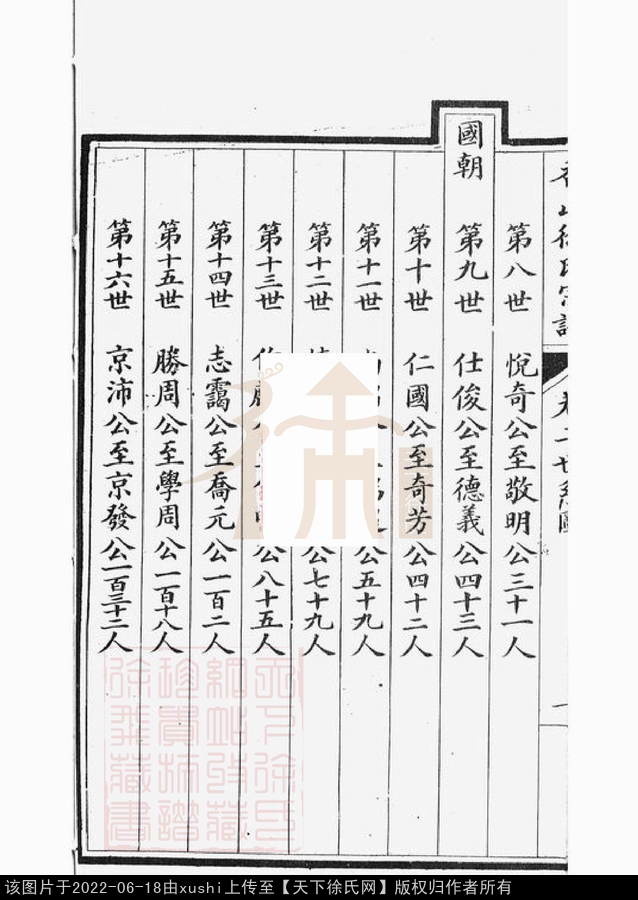 國朝
第八世 悅奇公至敬明公三十一人
第九世 仕俊公至德義公四十三人
第十世 仁國公至奇芳公四十二人
第十一世 公五十九人
第十二世 公七十九人
第十三世 公八十五人
第十四世 志靄公至喬元公一百二人
第十五世 勝周公至學周公一百十八人
第十六世 京沛公至京發公一百三十二人
徐
该图片于2022-06-18由xushi上传至【天下徐氏网】版权归作者所有